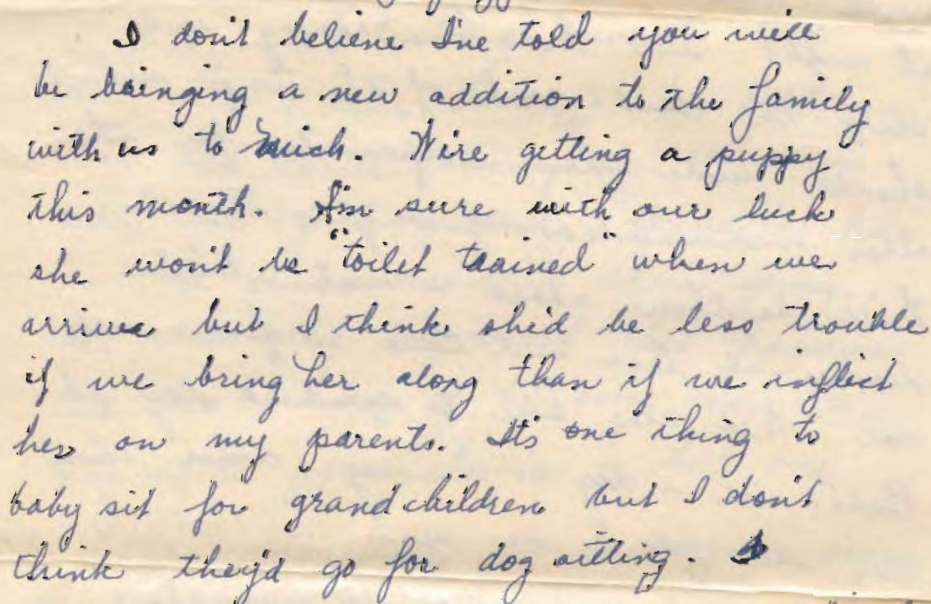 I don't believe I've told you we'll
be bringing a new addition to the family
with us to Mich. We're getting a puppy
this month. I'm sure with our luck
she won't be "toilet trained" when we
arrive but I think she'd be less trouble
if we bring her along than if we inflict
her on my parents. It's one thing to
baby sit for grandchildren but I don't
think they'd go for dog sitting. I